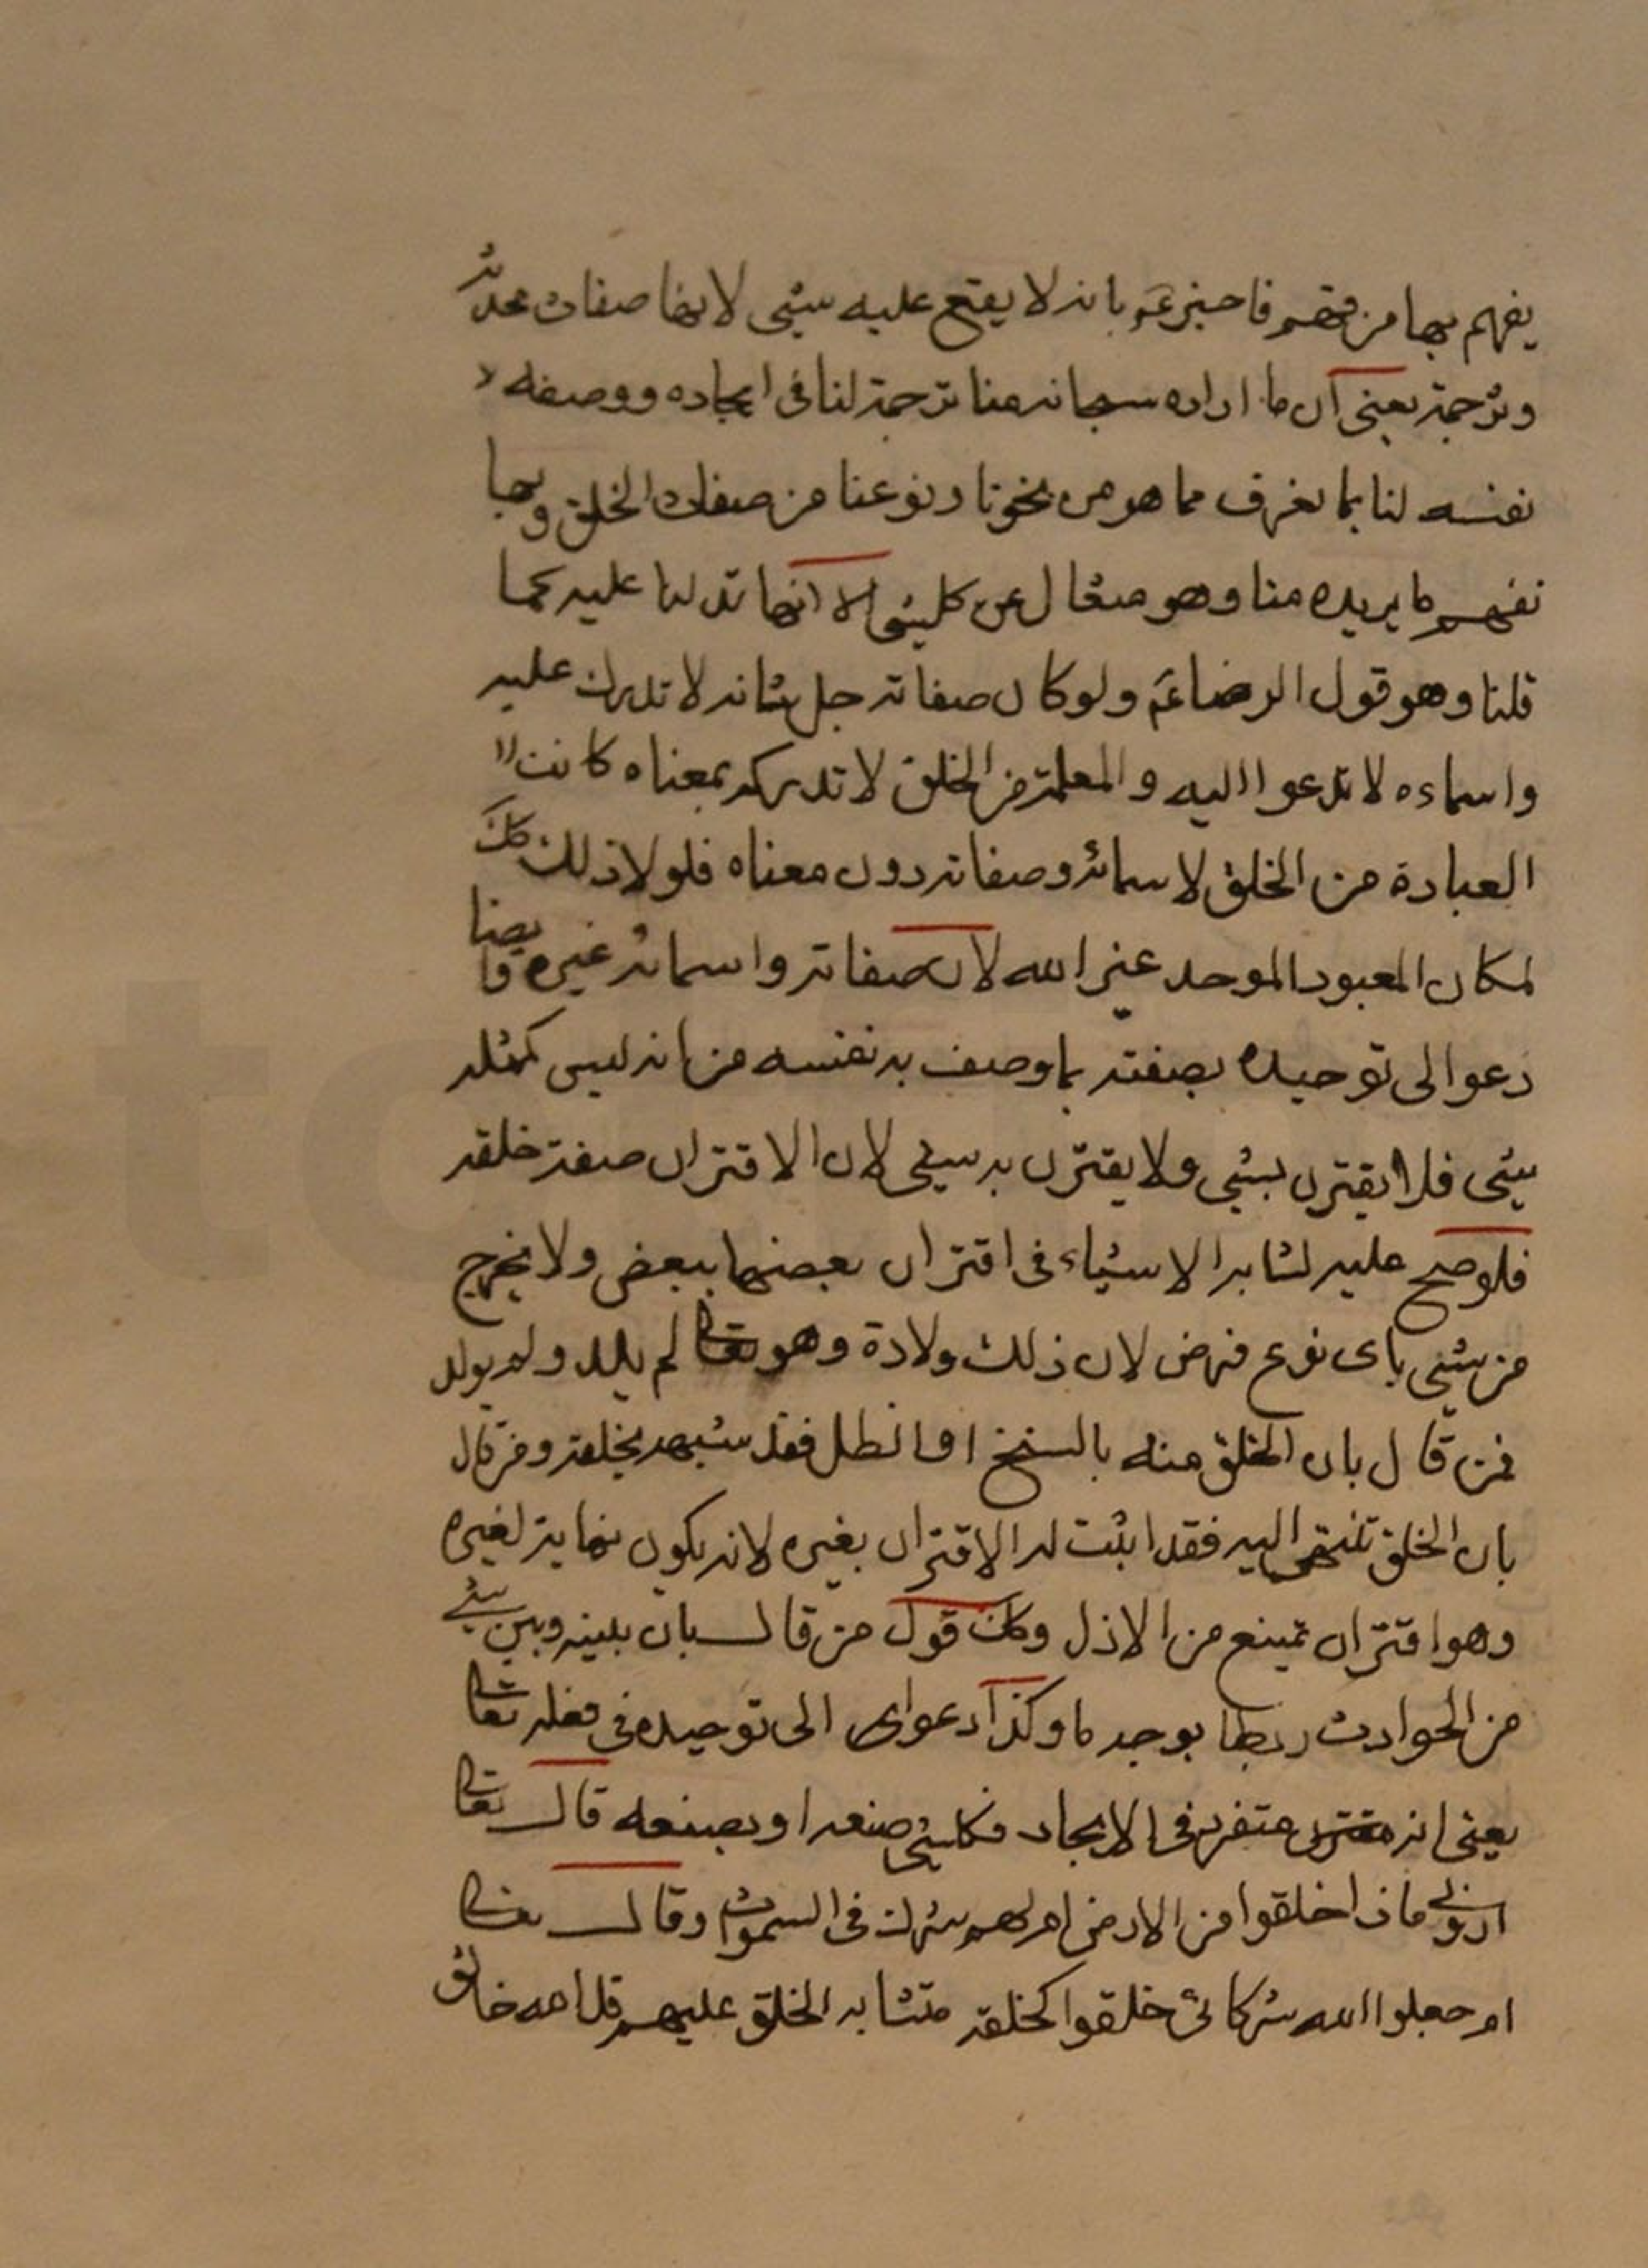 يفهم بها من فهم فاخبر عم بانه لا يقع عليه شئ لانها صفات محدثة
وترجمة يعنى ان ما اراده سبحانه منا ترجمة لنا فى ايجاده ووصفه
نفسه لنا بما نعرف مما هو من نحونا ونوعنا من صفات الخلق وبها
نفهم ما يريده منا وهو متعال عن كلشئ الا انها تدلنا عليه كما
قلنا وهو قول الرضا عم ولو كان صفاته جل شانه لا تدل عليه
واسماءه لا تدعوا اليه والمعلمة من الخلق لا تدركه بمعناه كانت
العبادة من الخلق لاسمائه وصفاته دون معناه فلولا ذلك كك
لكان المعبود الموحد غير الله لان صفاته واسمائه غيره وايضا
دعوا لى توحيده بصفته بما وصف به نفسه من انه ليس كمثله
شئ فلا يقترن بشئ ولا يقترن به شئ لان الاقتران صفة خلقه
فلو صح عليه لشابه الاشياء فى اقتران بعضها ببعض ولا يخرج
من شئ باى نوع فرض لان ذلك ولادة وهو تعا لم يلد ولم يولد
فمن قال بان الخلق منه بالسنخ او الظل فقد شبهه بخلقه ومن قال
بان الخلق تنتهى اليه فقد اثبت له الاقتران بغيره لانه يكون نهاية لغيره
وهو اقتران يمتنع من الازل وكك قول من قال بان بينه وبين شئ
من الحوادث ربطا بوجه ما وكذا دعواى الى توحيده فى فعله تعا
يعنى انه متفرد فى الايجاد فكلشئ صنعه او بصنعه قال تعا
ارونى ماذا خلقوا من الارض ام لهم شرك فى السموات وقال تعا
ام جعلوا لله شركائ خلقوا كخلقه فتشابه الخلق عليهم قل الله خالق